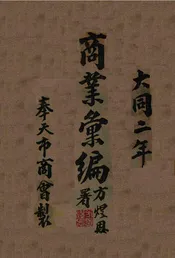 大同二年
商業彙編
方煜恩署
奉天市商會製